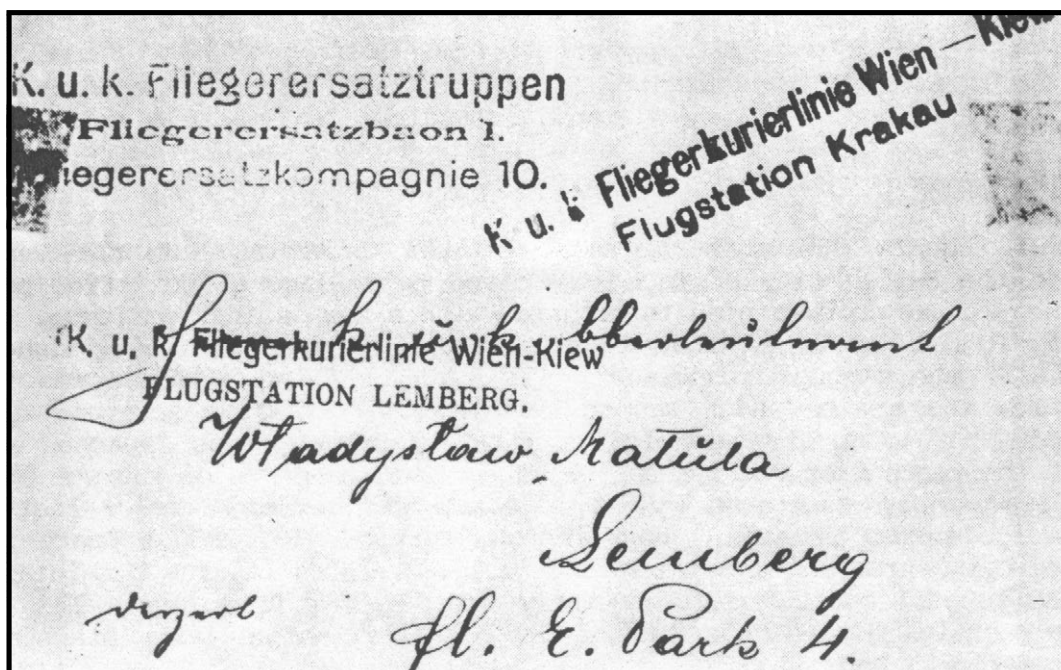 K. u. k. Fliegerersatztruppen
Fliegerersatzbaon 1.
liegerersatzkompagnie 10.
K. u. k Fliegerkurierlinie Wien—Kiew
Flugstation Krakau
k. u. k. Oberleutnant
K. u. k. Fliegerkurierlinie Wien-Kiew
FLUGSTATION LEMBERG.
Władysław Matula
Lemberg
fl. E. Park 4.